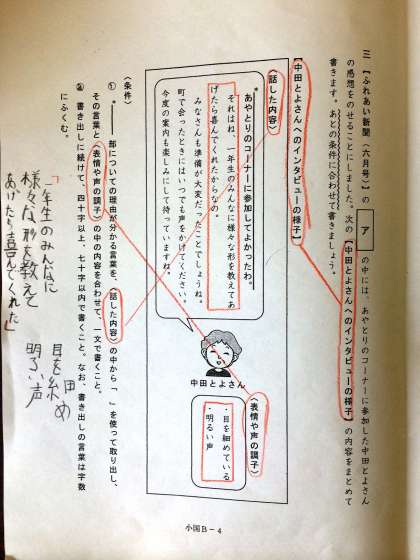 三　【ふれあい新聞（六月号）】の　ア　の中には、あやとりのコーナーに参加した中田とよさん
の感想をのせることにしました。次の【中田とよさんへのインタビューの様子】の内容をまとめて
書きます。あとの条件に合わせて書きましょう。
【中田とよさんへのインタビューの様子】
〈話した内容〉
あやとりのコーナーに参加してよかったわ。
それはね、一年生のみんなに様々な形を教えてあ
げたら喜んでくれたからなの。
みなさんも準備が大変だったことでしょうね。
町で会ったときには、いつでも声をかけてください。
今度の案内も楽しみにして待っていますね。
中田とよさん
〈表情や声の調子〉
・目を細めている
・明るい声
〈条件〉
① 部についての理由が分かる言葉を、〈話した内容〉の中から「　」を使って取り出し、
その言葉と〈表情や声の調子〉の中の内容を合わせて、一文で書くこと。
② 書き出しに続けて、四十字以上、七十字以内で書くこと。なお、書き出しの言葉は字数
にふくむ。
「一年生のみんなに
様々な形を教えて
あげたら喜んでくれた」
目を細め
明るい声
小国Ｂ－4